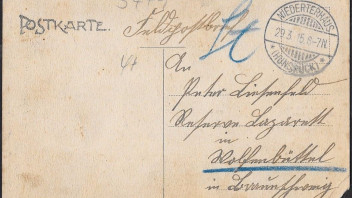 POSTKARTE.
Feldpost
NIEDER
29.3.15.6-7N.
*(HUNSRÜCK)*
An
Peter Liesenfeld
Reserve Lazarett
in
Wolfenbüttel
in Braunschweig